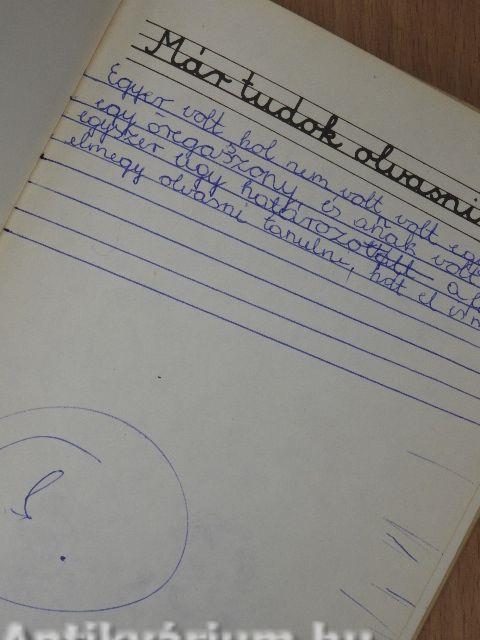 Már tudok olvasni
Egyer volt hol nem volt volt egy
egy öregaszony és anak volt
egyszer úgy határozott a
elmegy olvasni tanulni, hát el is
Antikvárium.hu